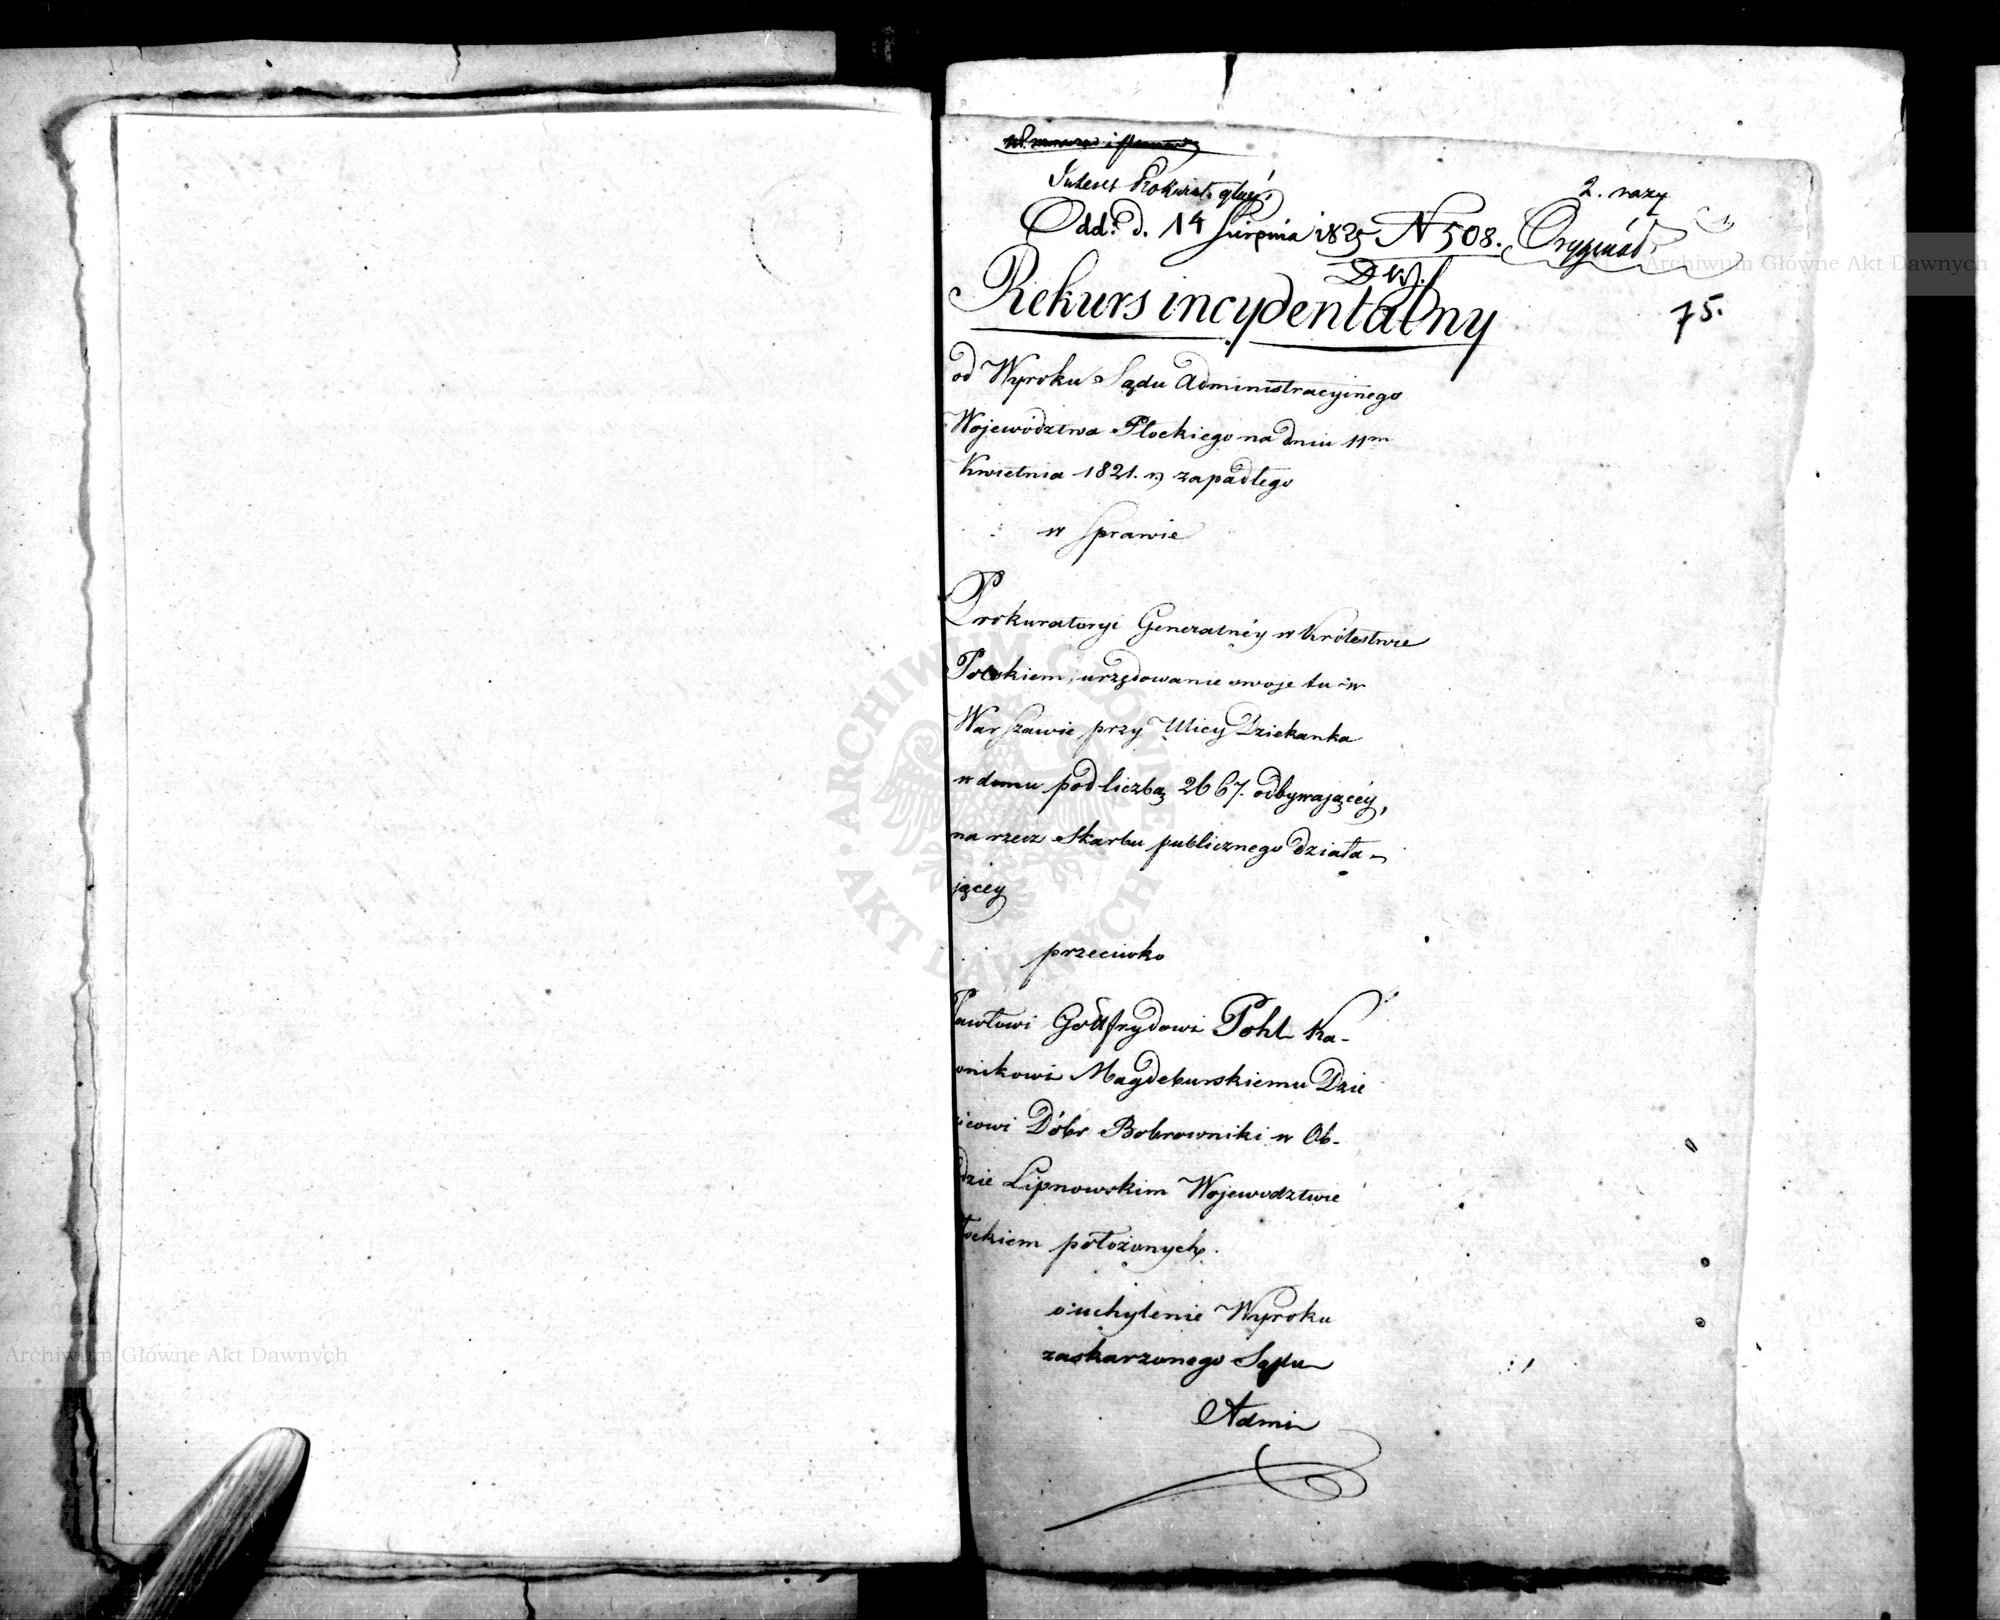 2. razy
Odd: d. 14 Sierpnia 1825 N 508. Oryginał
75.
Rekurs incydentalny
od Wyroku Sądu Administracyinego
Województwa Płockiego na dniu 11m
Kwietnia 1821. r) zapadłego
w Sprawie
Prokuratoryi Generalnéy w Królestwie
Polskiem, urzędowanie swoje tu w
Warszawie przy Ulicy Dziekanka
w domu pod liczbą 2667. odbywającéy,
na rzecz Skarbu publicznego działa-
jącey
przeciwko
Pawłowi Gottfrydowi Pohl Ka-
onikowi Magdeburskiemu Dzie
icowi Dóbr Bobrowniki w Ob-
dzie Lipnowskim Województwie
łockiem położonych.
o uchylenie Wyroku
zaskarzonego Sądu
Admi
Archiwum Główne Akt Dawnych
ARCHIWUM GŁÓWNE AKT DAWNYCH
Archiwum Główne Akt Dawnych